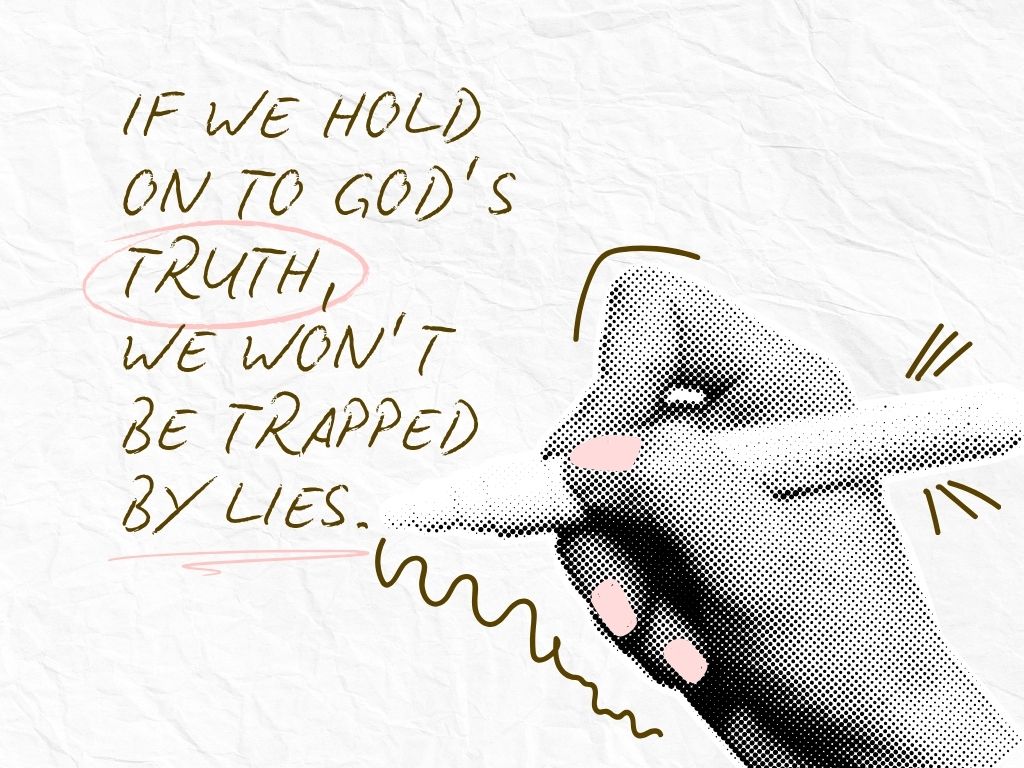 IF WE HOLD
ON TO GOD'S
TRUTH,
WE WON'T
BE TRAPPED
BY LIES.